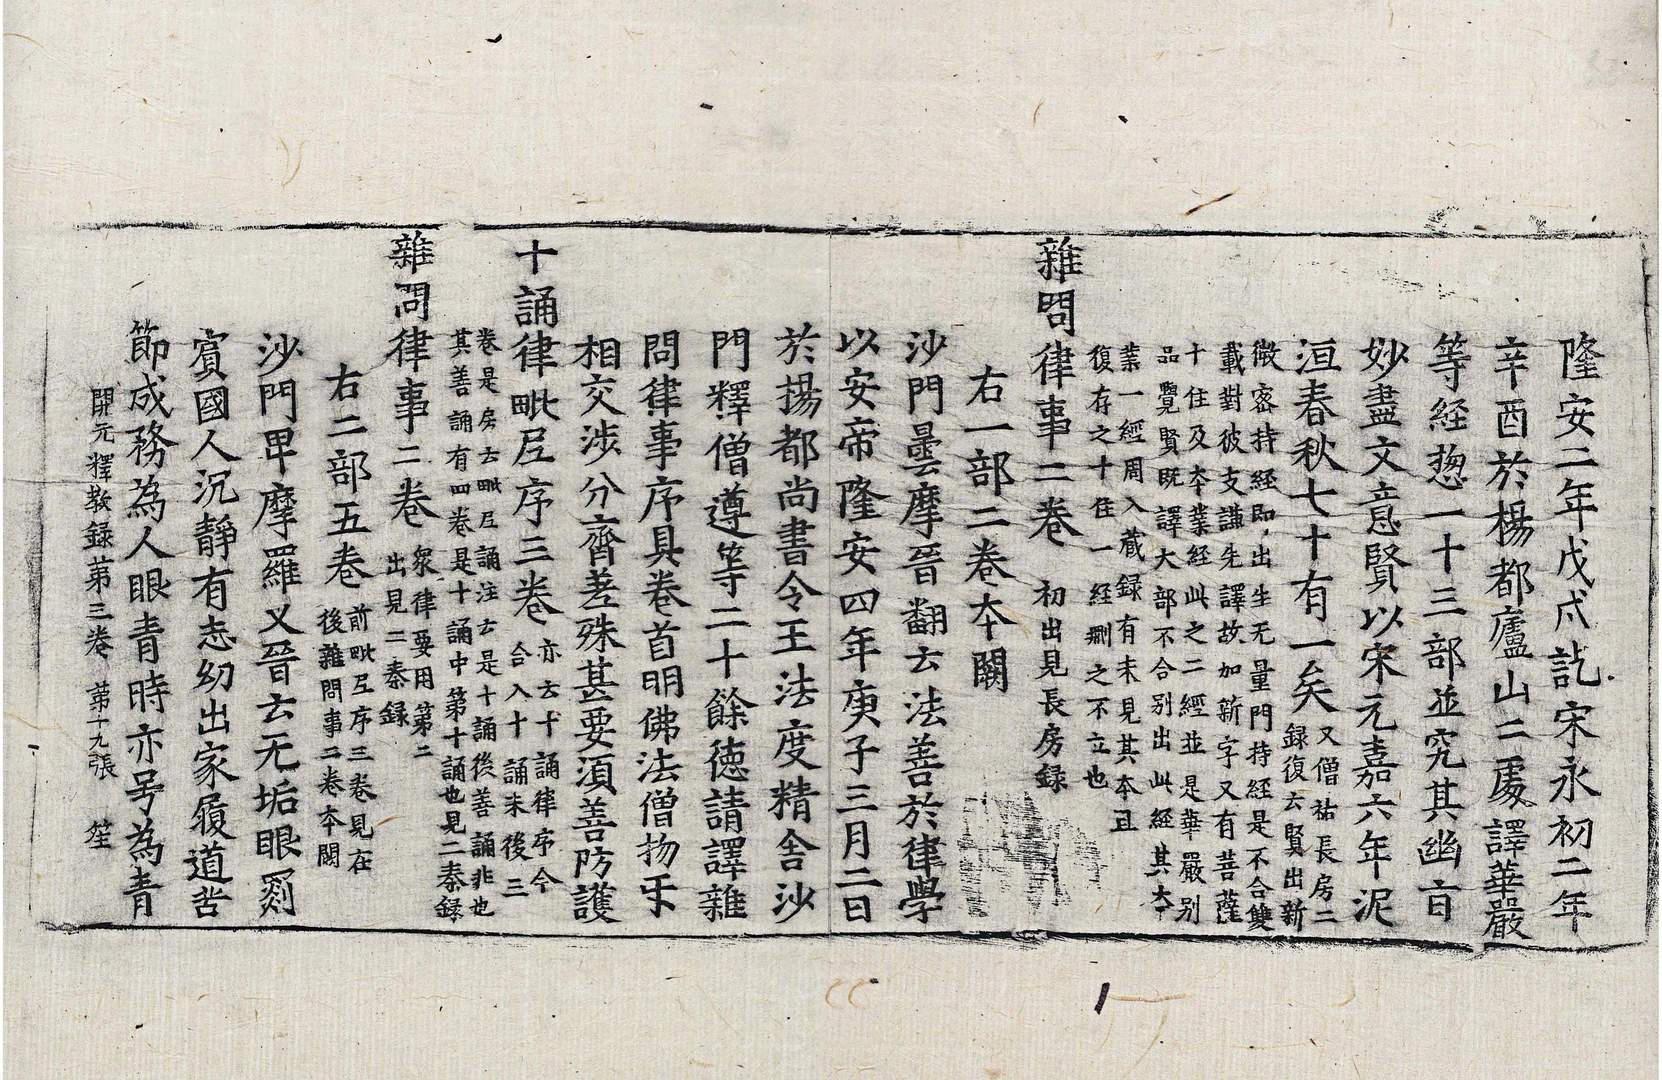 隆安二年戊戌訖宋永初二年
辛酉於楊都廬山二處譯華嚴
等経惣一十三部並究其幽盲
妙盡文意賢以宋元嘉六年泥
洹春秋七十有一矣 又僧祐長房二
録復云賢出新
微密持経即出生无量門持経是不合雙
載對彼支謙先譯故加新字又有菩薩
十住及夲業経此之二經並是華嚴別
品覺賢既譯大部不合別出此經其夲
業一經周入蔵録有未見其夲且
復存之十住一経刪之不立也
雜問律事二卷 初出見長房録
右一部二卷夲闕
沙門曇摩晉翻云法善於律學
以安帝隆安四年庚子三月二日
於揚都尚書令王法度精舍沙
門釋僧遵等二十餘徳請譯雜
問律事序具卷首明佛法僧物牙
相交涉分齊差殊甚要湏善防護
十誦律毗尼序三卷 亦云十誦律序今
合入十誦末後三
卷是房云毗尼誦注云是十誦後善誦非也
其善誦有四卷是十誦中第十誦也見二秦録
雜問律事二卷 衆律要用第二
出見二秦録
右二部五卷 前毗尼序三卷見在
後雜問事二卷夲闕
沙門卑摩羅叉晉云无垢眼罽
賓國人沉靜有志幼出家履道苦
節成務為人眼青時亦号為青
開元釋教録第三卷 第十九張 笙